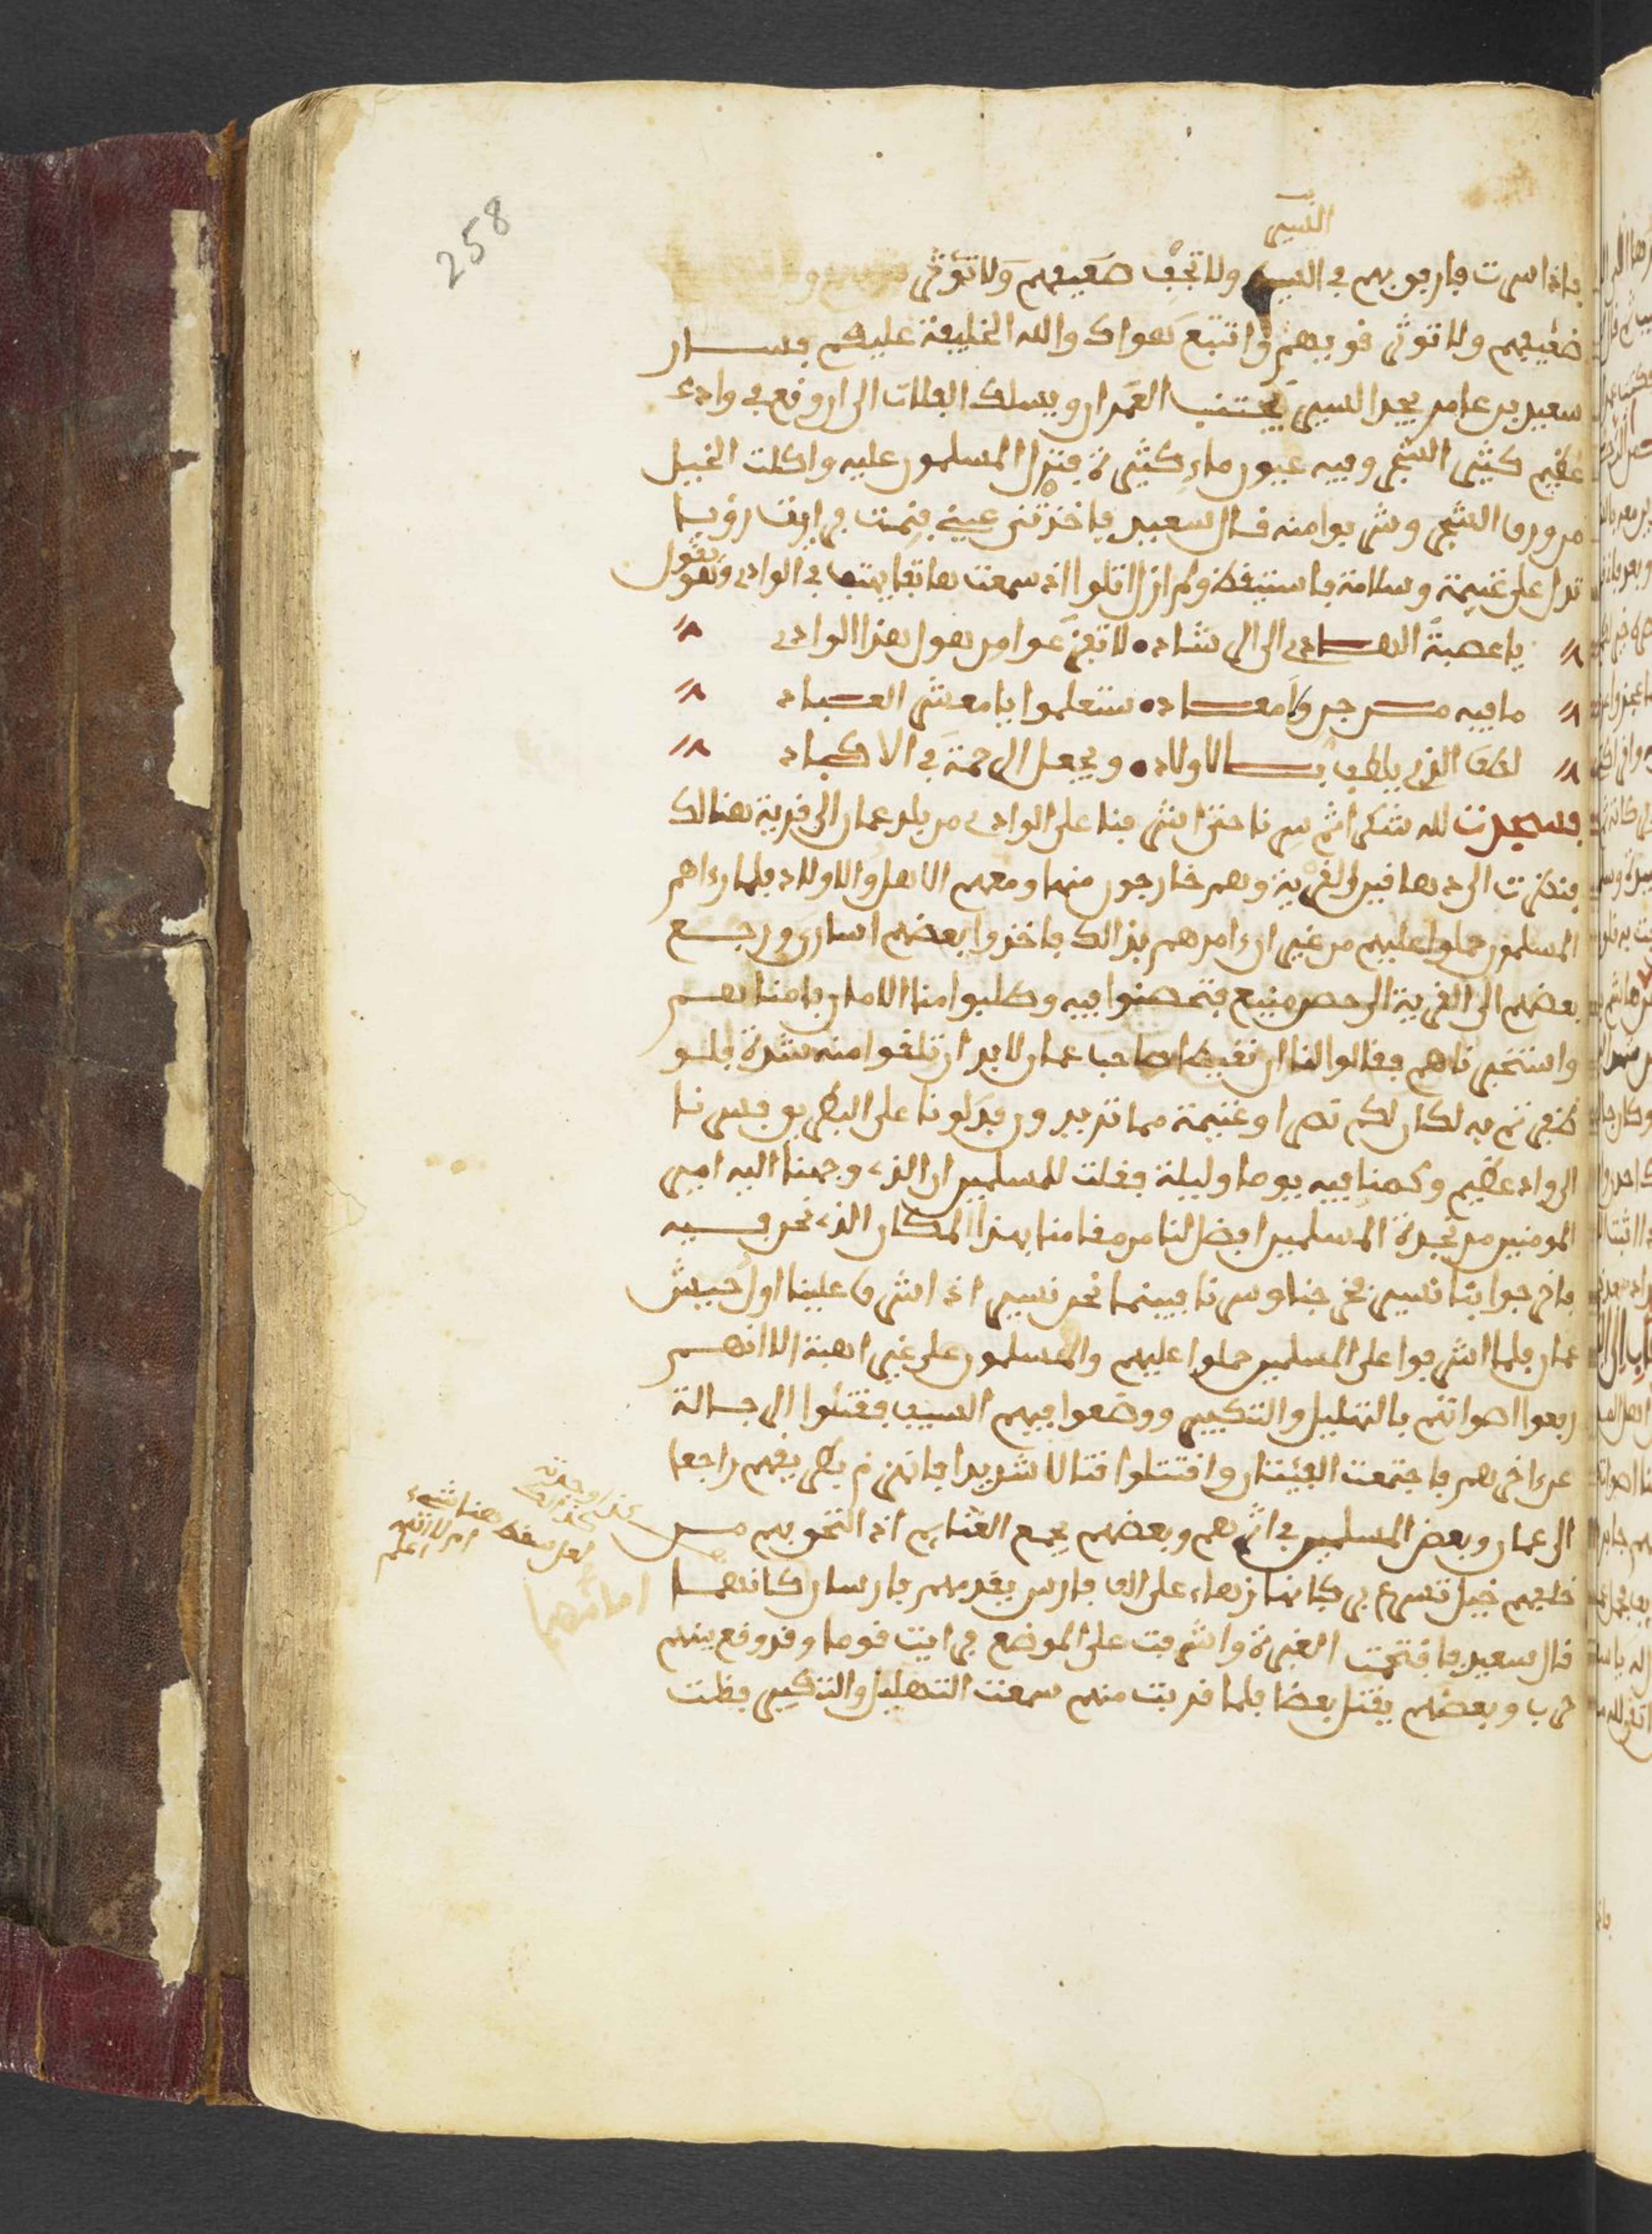 258
السير
فاذا سرت فارفق بهم في السير ولا تجف ضعيفهم ولا تؤثر
ضعيفهم ولا توثر قويهم واتبع هواك والله الخليفة عليكم فسار
سعيد بن عامر يجد السير يجتنب العمران ويسلك الفلات الى ان وقع في وادى
عظيم كثير الشجر وفيه عيون ماء كثيرة فنزل المسلمون عليه واكلت الخيل
من ورق الشجر وشربوا منه قال سعيد فاخذتني عيني فنمت فرايت رؤيا
تدل على غنيمة وسلامة فاستيقظ ولم ازل اتلوا اذ سمعت هاتفا يهتف في الوادى ويقول
يا عصبة الهادى الى الرشاد • لا تفزعوا من هول هذا الوادى
ما فيه من جن ولا معاد • ستعلموا يا معشر العباد
لطف الذي يلطف بالاولاد • ويجعل الرحمة في الاكباد
فسجدت لله شكرا ثم سرنا حتى اشرفنا على الوادى من بلد عمان الى قرية هنالك
فنظرت الى دهاقين القرية وهم خارجون منها ومعهم الاهل والاولاد فلما رءاهم
المسلمون حملوا عليهم من غير ان ءامرهم بذالك فاخذوا بعضهم اسارى ورجع
بعضهم الى القرية الى حصن منيع فتحصنوا فيه وطلبوا منا الامان فامناهم
واستخبرناهم فقالوا لنا ان نقيطا صاحب عمان لا بد ان تلقوا منه شدة فلو
ظفرتم به لكان لكم نصرا وغنيمة مما تريدون فدلونا على الطريق فسرنا
الى واد عظيم وكمنا فيه يوما وليلة فقلت للمسلمين ان الذى وجهنا اليه امير
المومنين من نجدة المسلمين افضل لنا من مقامنا بهذا المكان الذى نحن فيه
فاخرجوا بنا نسير فخرجنا وسرنا فبينما نحن نسير اذ اشرف علينا اول جيش
عمان فلما اشرفوا على المسلمين حملوا عليهم والمسلمون على غير اهبة الا انهم
رفعوا اصواتهم بالتهليل والتكبير ووضعوا فيهم السيف فقتلوا الرجالة
عن ءاخرهم فاجتمعت الفئتان واقتتلوا قتالا شديدا فانهزم بطريقهم راجعا
الى عمان وبعض المسلمين في اثرهم وبعضهم يجمع الغنايم اذ التحق بهم من
خلفهم خيل تسرع في كانها زهاء على الف فارس يقدمهم فارسان كانهما
قال سعيد فافتحمت الغبرة واشرفت على الموضع فرايت قوما وقد وقع بينهم
حرب وبعضهم يقتل بعضا فلما قربت منهم سمعت التهليل والتكبير فظلت
كذا وجدته
لعل سقط هنا شىء
ام لا الله اعلم